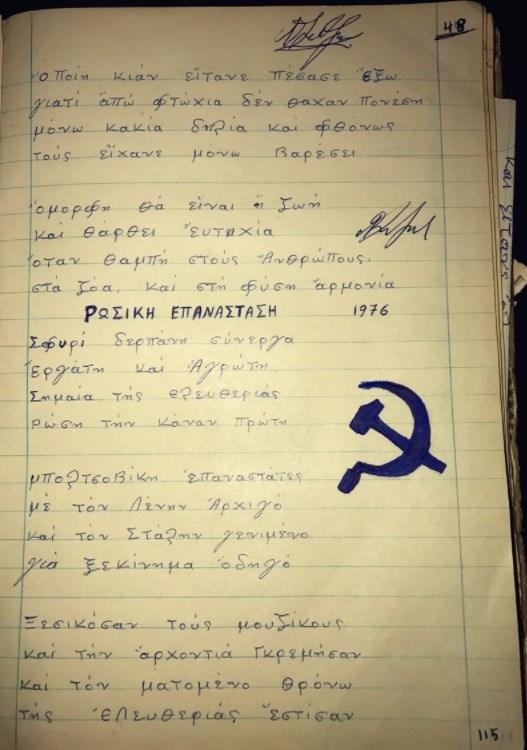 48
Ὁποίη κιάν εἴτανε πέσασε ἔξω
γιατί ἀπώ φτώχια δέν θαχαν πονέση
μόνω κακία δηλία και φθόνως
τούς εἴχανε μόνω βαρέσει
ὁμορφη θά εἶναι ἡ ζωή
και θάρθει εὐτηχία
ὅταν θαμπή στούς Ἀνθρώπους.
στά ζόα. και στή φύση ἁρμονία
ΡΩΣΙΚΗ ΕΠΑΝΑΣΤΑΣΗ 1976
Σφυρί δερπάνη σύνεργα
Ἐργάτη και Ἀγρώτη
Σημαία τής ἐλευθεριάς
Ρώση τήν κάναν πρώτη
μπολτσοβίκη ἐπαναστάτες
μέ τόν Λένην Ἀρχιγό
και τόν Στάλην γενιμένο
γιά ξεκίνημα ὁδηγό
Ξεσικόσαν τούς μουζίκους
και τήν ἀρχοντιά Γκρεμήσαν
και τόν ματομένο θρόνω
τής ἐλευθεριάς ἔστισαν
115
και εἴτανε